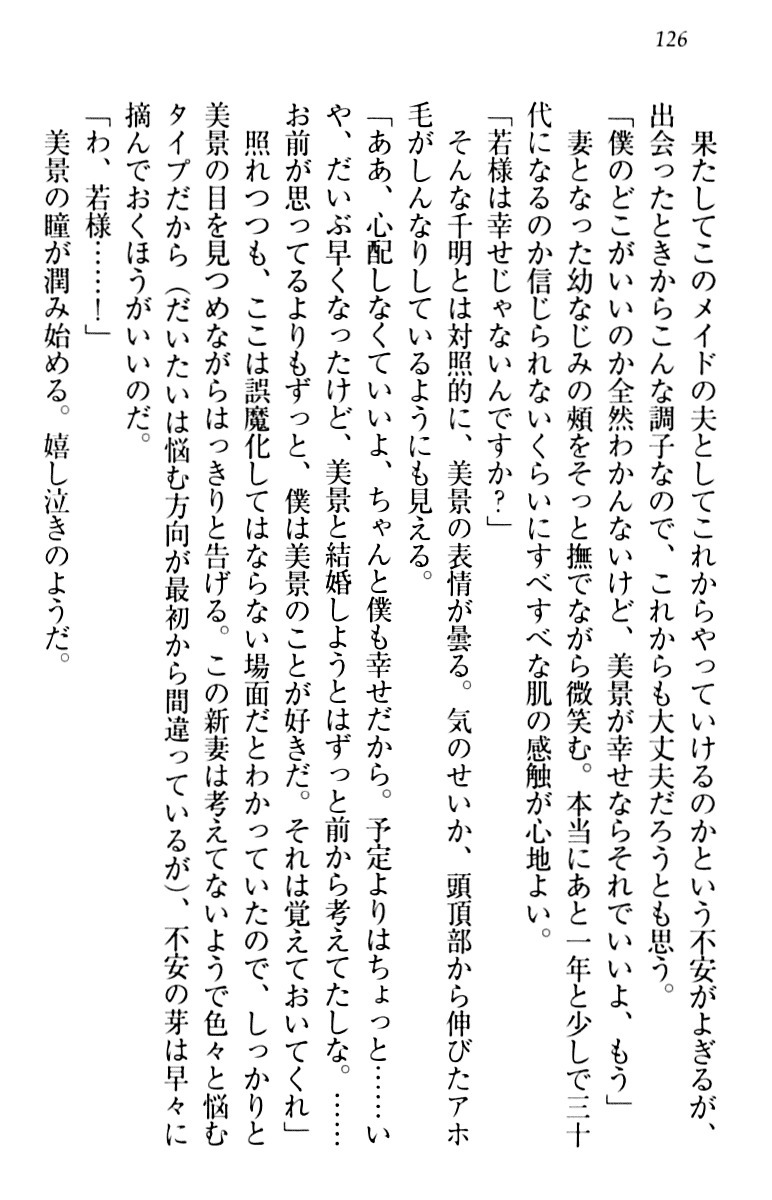 126
果たしてこのメイドの夫としてこれからやっていけるのかという不安がよぎるが、
出会ったときからこんな調子なので、これからも大丈夫だろうとも思う。
「僕のどこがいいのか全然わかんないけど、美景が幸せならそれでいいよ、もう」
妻となった幼なじみの頰をそっと撫でながら微笑む。本当にあと一年と少しで三十
代になるのか信じられないくらいにすべすべな肌の感触が心地よい。
「若様は幸せじゃないんですか？」
そんな千明とは対照的に、美景の表情が曇る。気のせいか、頭頂部から伸びたアホ
毛がしんなりしているようにも見える。
「ああ、心配しなくていいよ、ちゃんと僕も幸せだから。予定よりはちょっと……い
や、だいぶ早くなったけど、美景と結婚しようとはずっと前から考えてたしな。……
お前が思ってるよりもずっと、僕は美景のことが好きだ。それは覚えておいてくれ」
照れつつも、ここは誤魔化してはならない場面だとわかっていたので、しっかりと
美景の目を見つめながらはっきりと告げる。この新妻は考えてないようで色々と悩む
タイプだから（だいたいは悩む方向が最初から間違っているが）、不安の芽は早々に
摘んでおくほうがいいのだ。
「わ、若様……！」
美景の瞳が潤み始める。嬉し泣きのようだ。